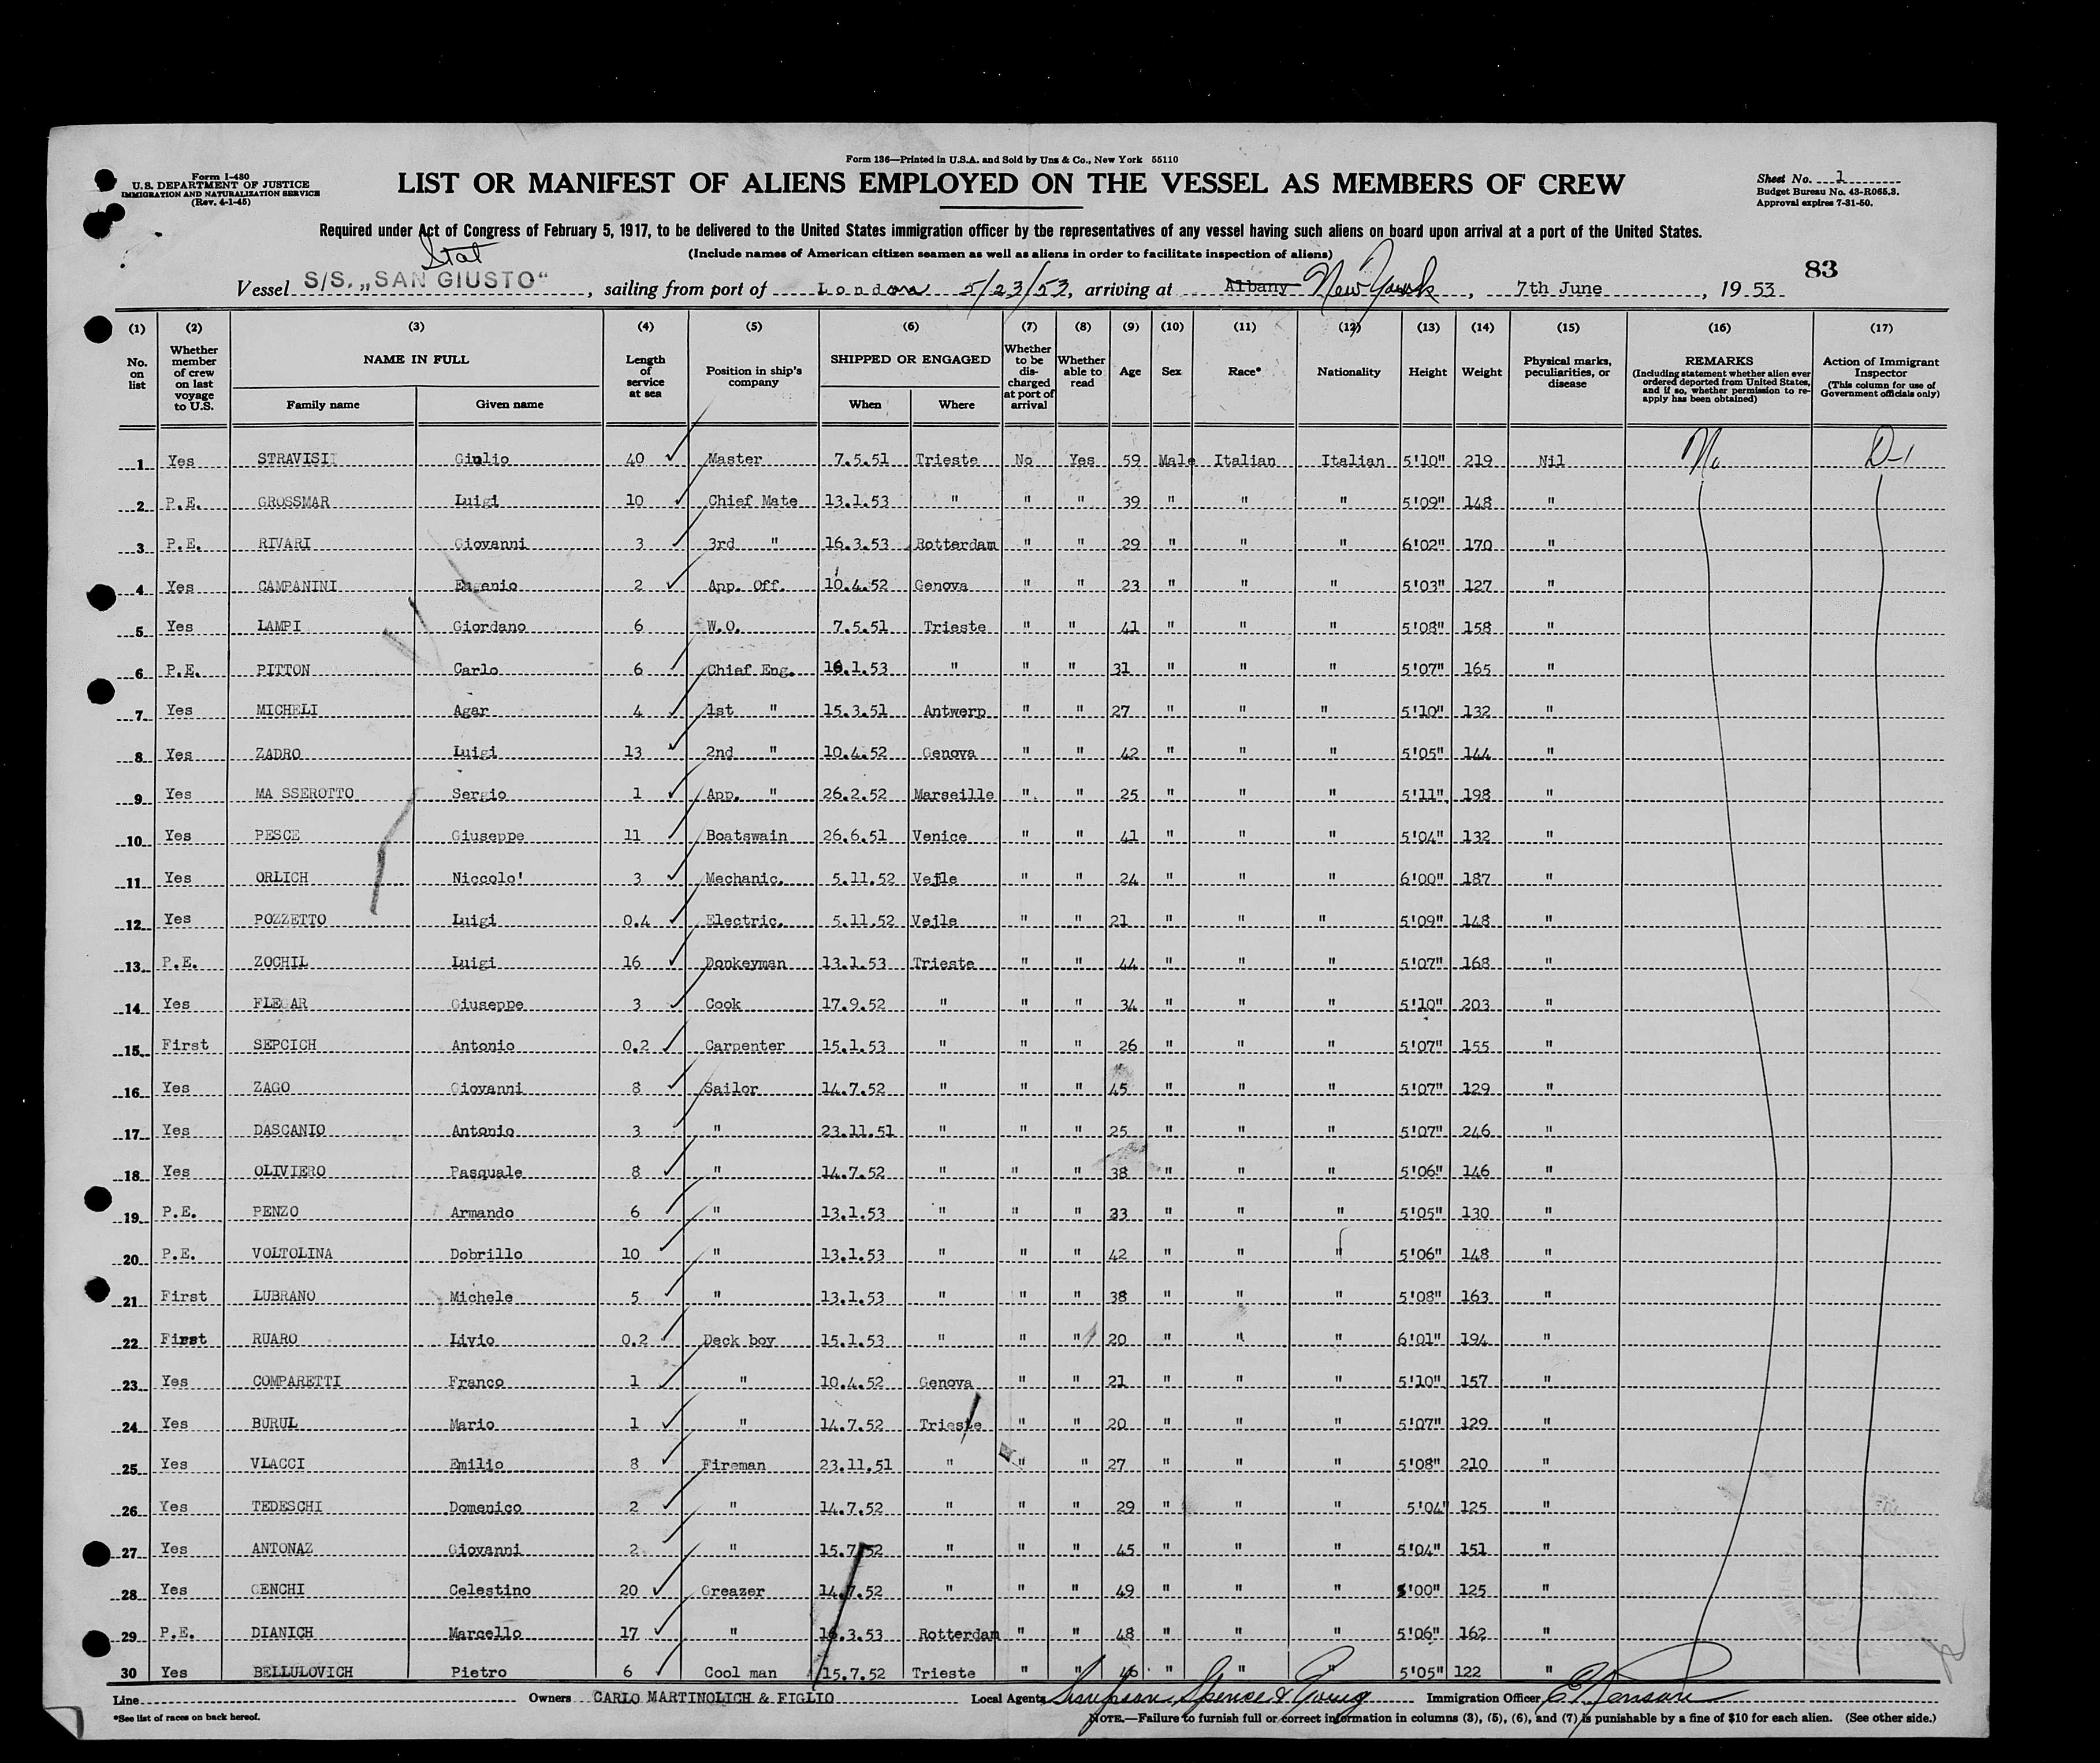 Form 136—Printed in U.S.A. and Sold by Unz & Co., New York 55110
Form I-480
U.S. DEPARTMENT OF JUSTICE
IMMIGRATION AND NATURALIZATION SERVICE
(Rev. 4-1-45)
LIST OR MANIFEST OF ALIENS EMPLOYED ON THE VESSEL AS MEMBERS OF CREW
Sheet No. 1
Budget Bureau No. 43-R065.3.
Approval expires 7-31-50.
Required under Act of Congress of February 5, 1917, to be delivered to the United States immigration officer by the representatives of any vessel having such aliens on board upon arrival at a port of the United States.
Stat
(Include names of American citizen seamen as well as aliens in order to facilitate inspection of aliens)
83
Vessel S/S. „SAN GIUSTO“, sailing from port of London 5/23/53, arriving at Albany New York, 7th June, 19 53
(1) (2) (3) (4) (5) (6) (7) (8) (9) (10) (11) (12) (13) (14) (15) (16) (17)
No. on list
Whether member of crew on last voyage to U.S.
NAME IN FULL
Family name Given name
Length of service at sea
Position in ship's company
SHIPPED OR ENGAGED
When Where
Whether to be discharged at port of arrival
Whether able to read
Age
Sex
Race*
Nationality
Height
Weight
Physical marks, peculiarities, or disease
REMARKS
(Including statement whether alien ever ordered deported from United States, and if so, whether permission to reapply has been obtained)
Action of Immigrant Inspector
(This column for use of Government officials only)
1 Yes STRAVISI Giulio 40 Master 7.5.51 Trieste No Yes 59 Male Italian Italian 5'10" 219 Nil No D-1
2 P.E. GROSSMAR Luigi 10 Chief Mate 13.1.53 " " " 39 " " " 5'09" 148 "
3 P.E. RIVARI Giovanni 3 3rd " 16.3.53 Rotterdam " " 29 " " " 6'02" 170 "
4 Yes CAMPANINI Eugenio 2 App. Off. 10.4.52 Genova " " 23 " " " 5'03" 127 "
5 Yes LAMPI Giordano 6 W.O. 7.5.51 Trieste " " 41 " " " 5'08" 158 "
6 P.E. PITTON Carlo 6 Chief Eng. 16.1.53 " " " 31 " " " 5'07" 165 "
7 Yes MICHELI Agar 4 1st " 15.3.51 Antwerp " " 27 " " " 5'10" 132 "
8 Yes ZADRO Luigi 13 2nd " 10.4.52 Genova " " 42 " " " 5'05" 144 "
9 Yes MA SSEROTTO Sergio 1 App. " 26.2.52 Marseille " " 25 " " " 5'11" 198 "
10 Yes PESCE Giuseppe 11 Boatswain 26.6.51 Venice " " 41 " " " 5'04" 132 "
11 Yes ORLICH Niccolo' 3 Mechanic. 5.11.52 Vejle " " 24 " " " 6'00" 187 "
12 Yes POZZETTO Luigi 0.4 Electric. 5.11.52 Vejle " " 21 " " " 5'09" 148 "
13 P.E. ZOCHIL Luigi 16 Donkeyman 13.1.53 Trieste " " 44 " " " 5'07" 168 "
14 Yes FLEGAR Giuseppe 3 Cook 17.9.52 " " " 34 " " " 5'10" 203 "
15 First SEPCICH Antonio 0.2 Carpenter 15.1.53 " " " 26 " " " 5'07" 155 "
16 Yes ZAGO Giovanni 8 Sailor 14.7.52 " " " 45 " " " 5'07" 129 "
17 Yes DASCANIO Antonio 3 " 23.11.51 " " " 25 " " " 5'07" 246 "
18 Yes OLIVIERO Pasquale 8 " 14.7.52 " " " 38 " " " 5'06" 146 "
19 P.E. PENZO Armando 6 " 13.1.53 " " " 33 " " " 5'05" 130 "
20 P.E. VOLTOLINA Dobrillo 10 " 13.1.53 " " " 42 " " " 5'06" 148 "
21 First LUBRANO Michele 5 " 13.1.53 " " " 38 " " " 5'08" 163 "
22 First RUARO Livio 0.2 Deck boy 15.1.53 " " " 20 " " " 6'01" 194 "
23 Yes COMPARETTI Franco 1 " 10.4.52 Genova " " 21 " " " 5'10" 157 "
24 Yes BURUL Mario 1 " 14.7.52 Trieste " " 20 " " " 5'07" 129 "
25 Yes VLACCI Emilio 8 Fireman 23.11.51 " " " 27 " " " 5'08" 210 "
26 Yes TEDESCHI Domenico 2 " 14.7.52 " " " 29 " " " 5'04" 125 "
27 Yes ANTONAZ Giovanni 2 " 15.7.52 " " " 45 " " " 5'04" 151 "
28 Yes CENCHI Celestino 20 Greazer 14.7.52 " " " 49 " " " 5'00" 125 "
29 P.E. DIANICH Marcello 17 " 16.3.53 Rotterdam " " 48 " " " 5'06" 162 "
30 Yes BELLULOVICH Pietro 6 Cool man 15.7.52 Trieste " " 46 " " " 5'05" 122 "
Line Owners CARLO MARTINOLICH & FIGLIO Local Agents Simpson, Spence & Young Immigration Officer
*See list of races on back hereof.
NOTE.—Failure to furnish full or correct information in columns (3), (5), (6), and (7) is punishable by a fine of $10 for each alien. (See other side.)